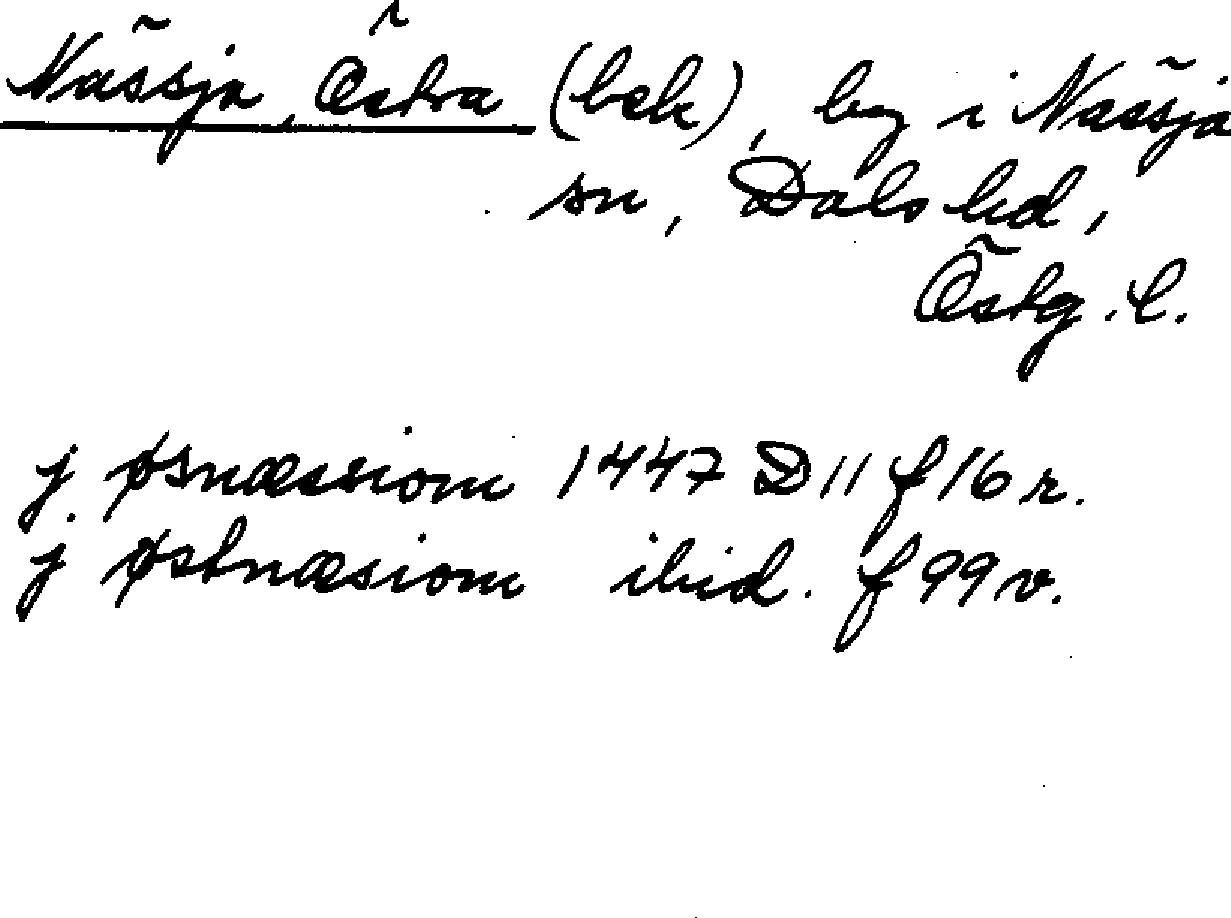 Nässja, Östra (bek), by i Nässja
sn, Dals hd,
Östg. l.
j. øsnæssiom 1447 D 11 f 16 r.
j østnæsiom ibid. f 99 v.